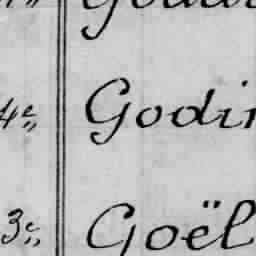 4e,, Godin
3e,, Goël